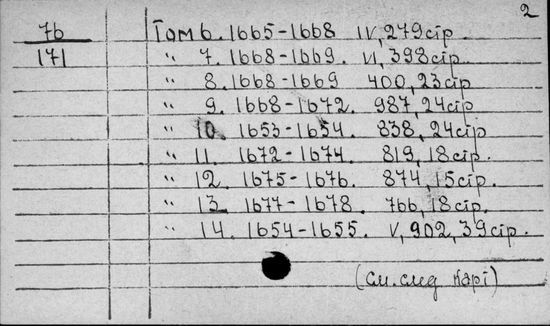 2
7б Том 6. 1665-1668 IV, 279 стр.
171 " 7. 1668-1669. VI, 398 стр.
" 8. 1668-1669 400, 23 стр
" 9. 1668-1672. 987, 24 стр
" 10. 1653-1654. 838, 24 стр
" 11. 1672-1674. 819, 18 стр.
" 12. 1675-1676. 874, 15 стр.
" 13. 1677-1678. 766, 18 стр.
" 14. 1654-1655. V, 902, 39 стр.
(см. след карт)